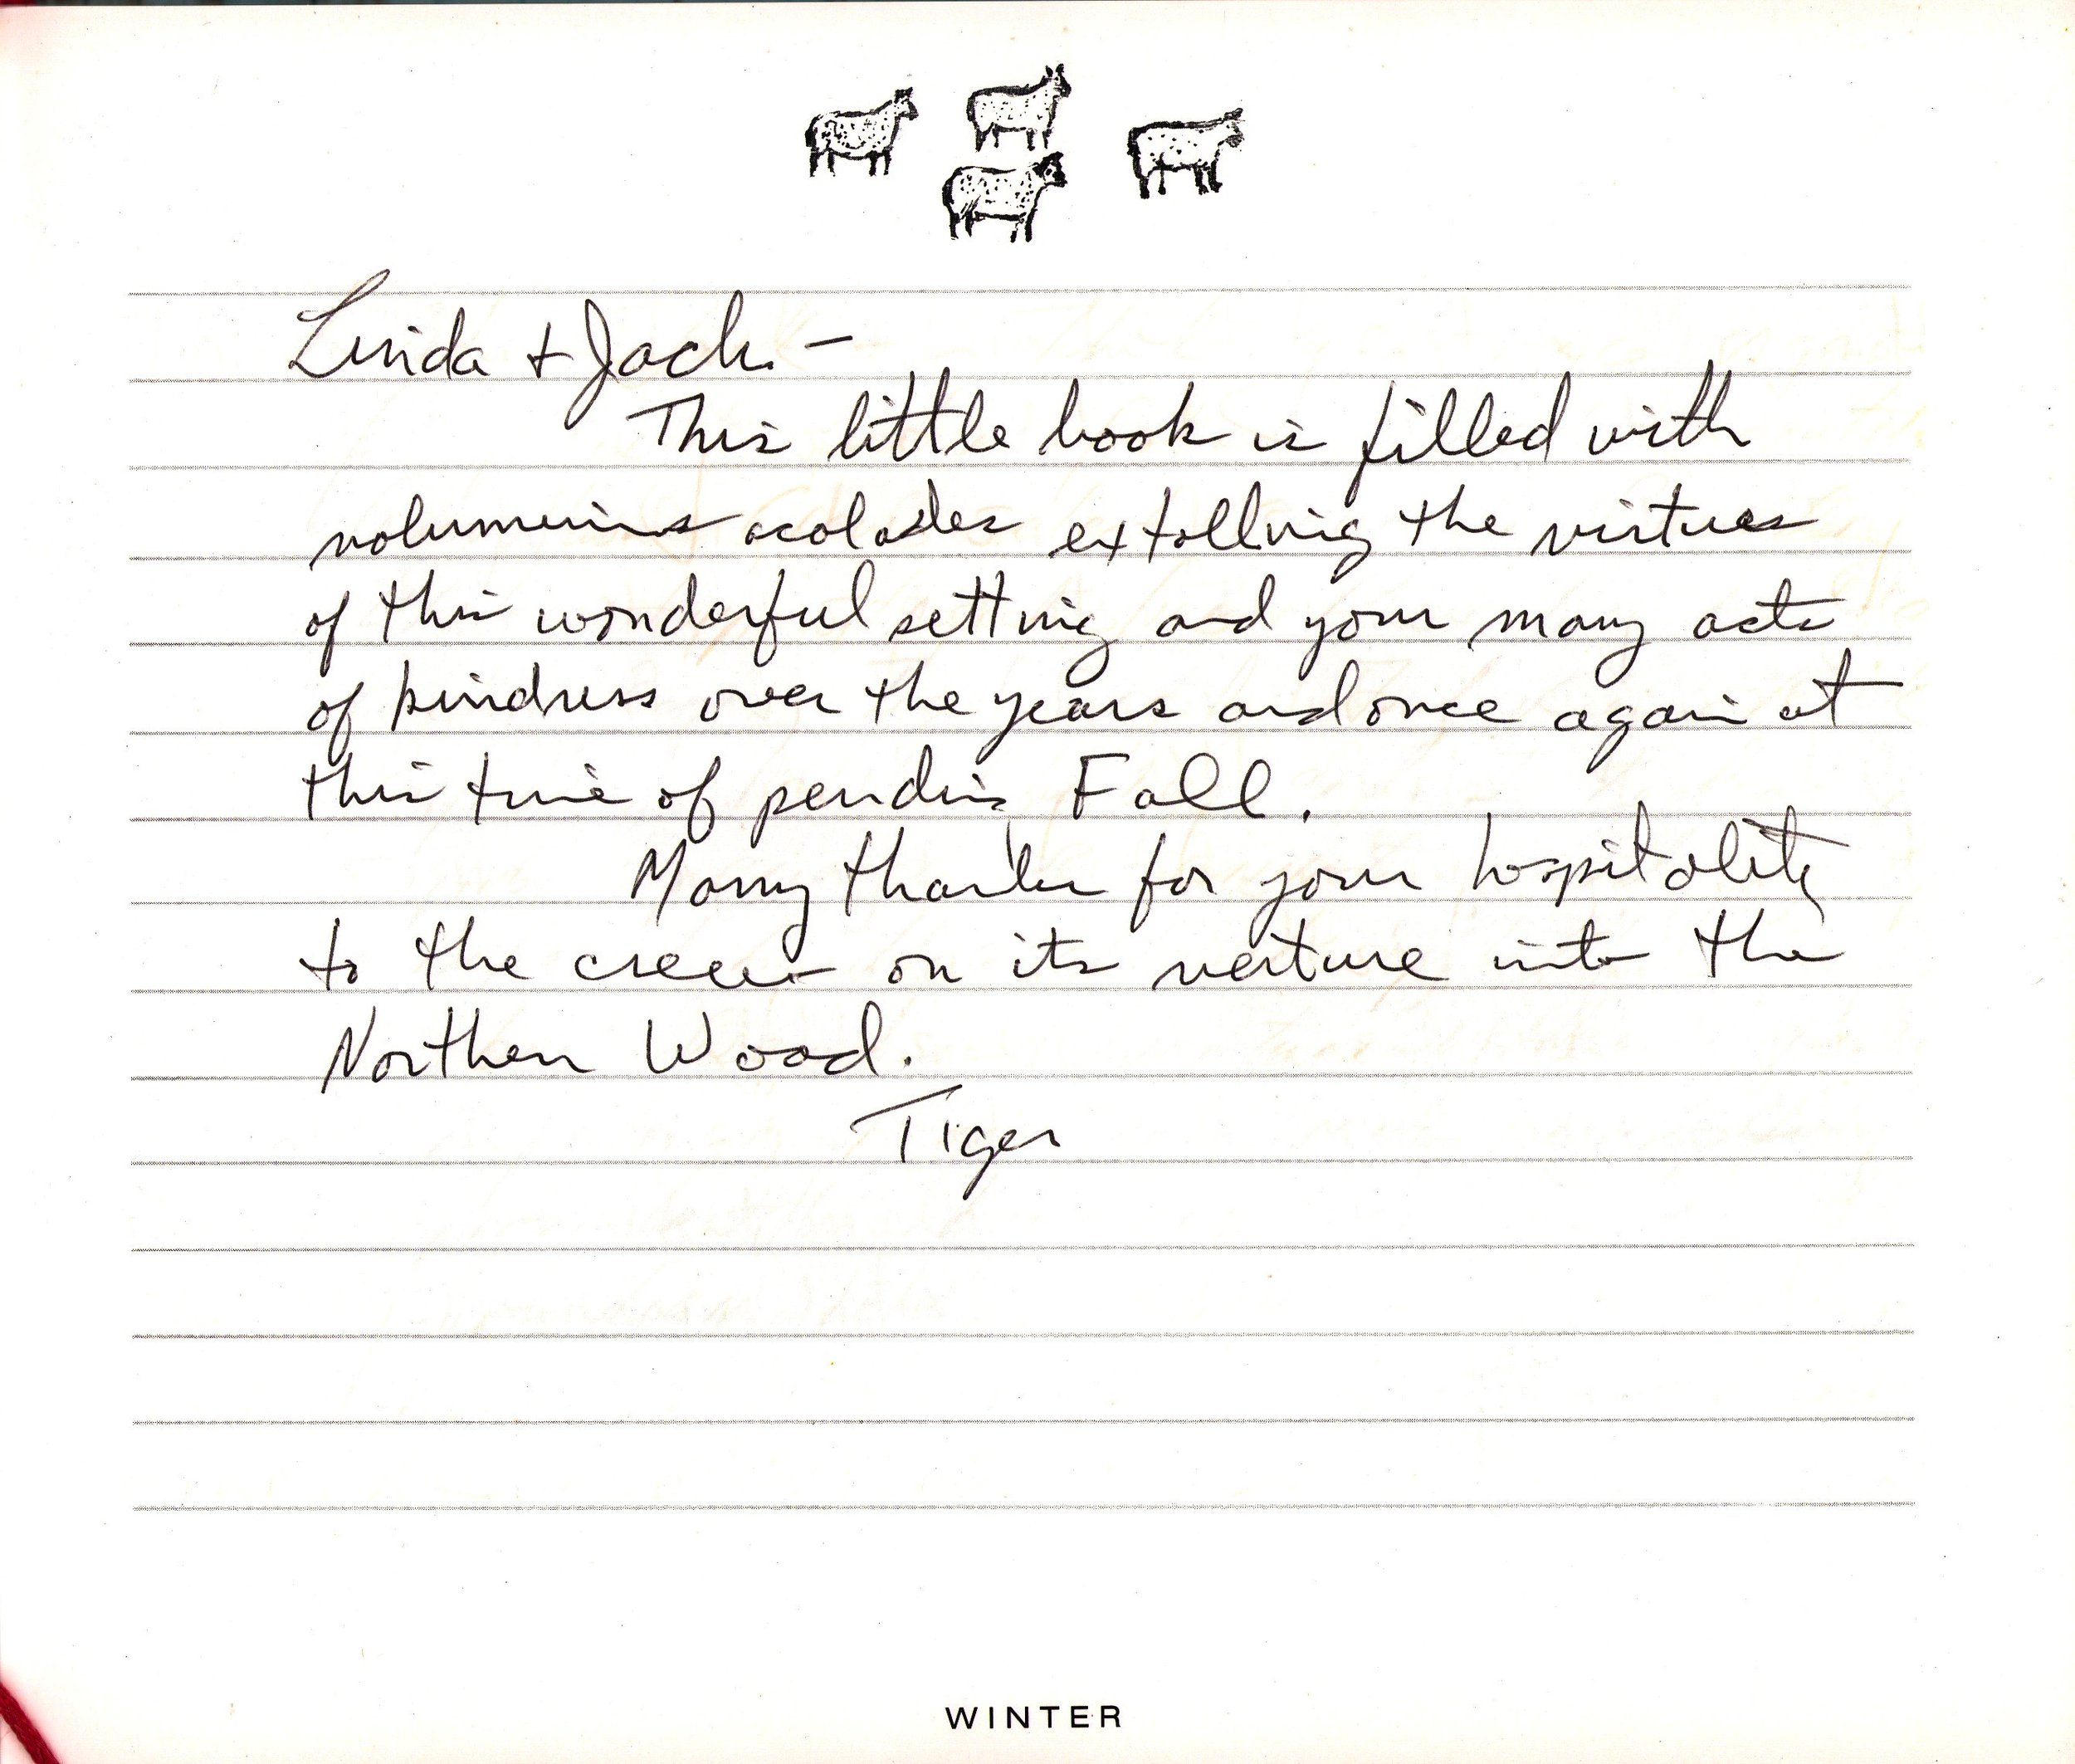 Linda + Jack. —
This little book is filled with
voluminins acolades extolling the virtues
of this wonderful setting and your many acts
of kindness over the years and once again at
this time of pending Fall.
Many thanks for your hospitality
to the crew on its venture into the
Northern Wood.
Tiger
WINTER